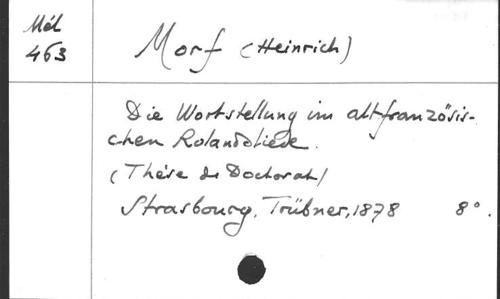 Mél
463
Morf (Heinrich)
Die Wortstellung im altfranzösis-
chen Rolandsliede.
(Thèse de Doctorat)
Strasbourg, Trübner, 1878 8°.